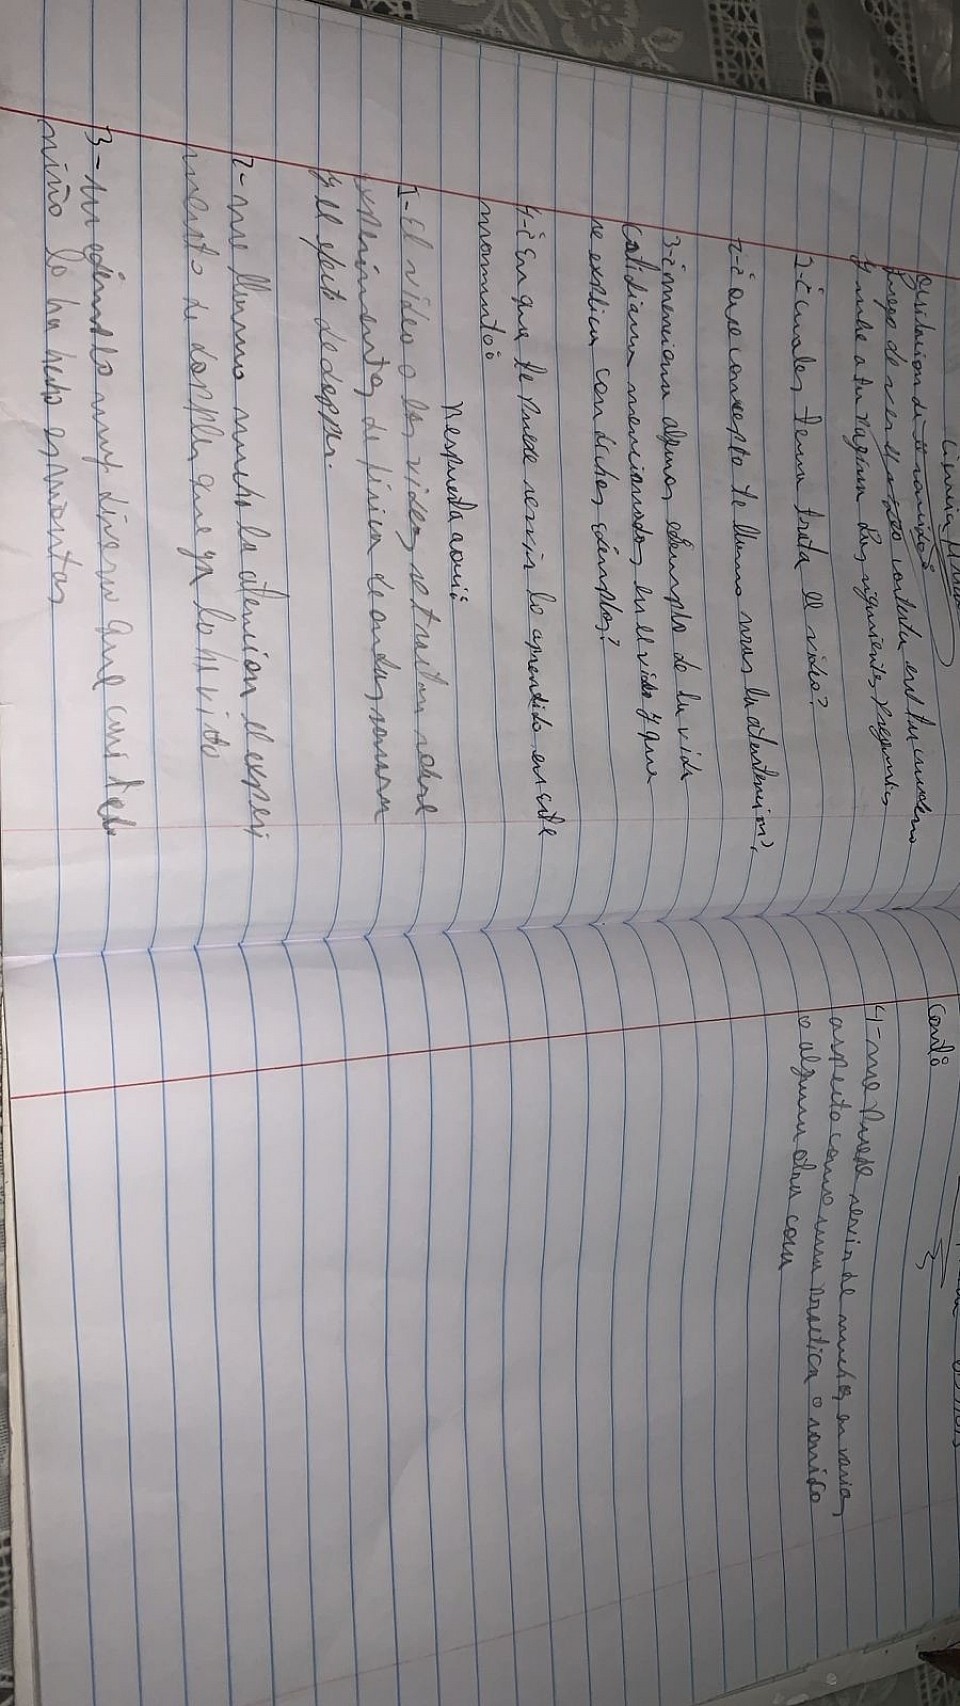 luego de ver el video contesta en tu cuaderno
y sube a tu pagina las siguientes preguntas
1-¿cuales tema trata el video?
2-¿que concepto te llamo mas la atentencion?
3-¿menciona algunos ejemplo de la vida
cotidiana mencionados en el video y que
se explica con dichos ejemplos?
4-¿En que te puede servir lo aprendido en este
momento:
Respuesta aqui:
1-El video o los videos se tratan sobre
experimentos de fisica de ondas sonora
y el efect de dopper.
2-me llammo mucho la atencion el experi
mento de doppler que ya lo he visto
3-un ejemplo muy diverso que cuisted
niño lo ha hecho es montar
Cont:
4-me Puede servir de muchos en varios
aspecto como una practica o sonido
o alguna otra cosa